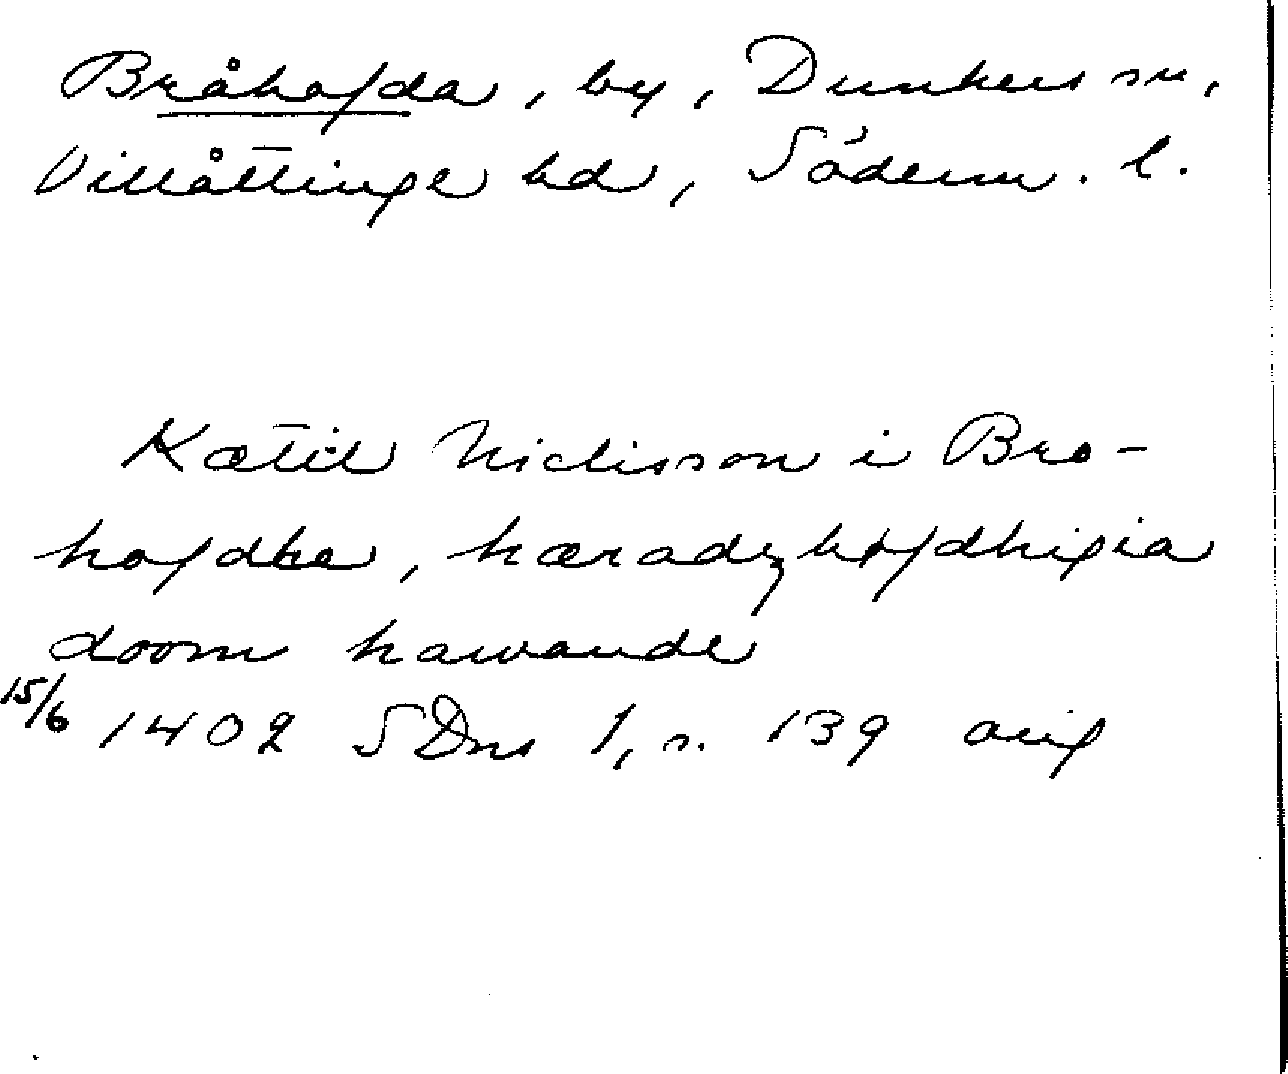 Bråhofda, by, Dunkers sn,
Villåttinge hd, Söderm. l.
Kætil Niclisson i Bro-
hofdha, hæradzhøfdhigia
doom hawande
15/6 1402 SDns 1, s. 139 orig